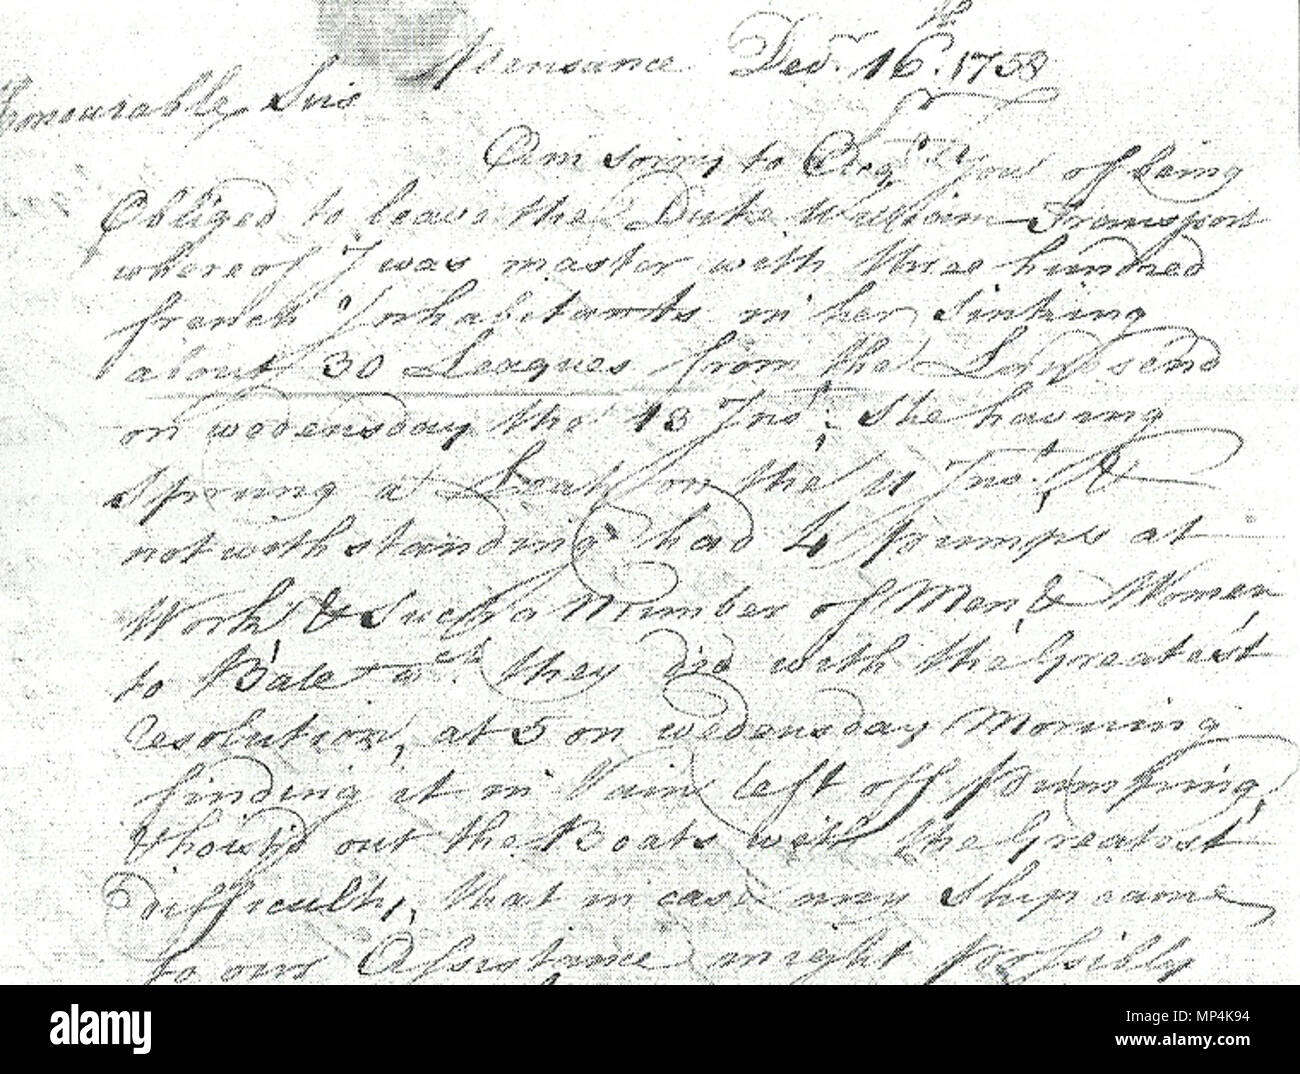 Pensance Decr. 16. 1758
Honourable Sirs
Am sorry to Acqt. You of being
Obliged to leave the Duke William Transport
whereof I was master with three hundred
french Inhabitants in her Sinking
about 30 Leagues from the Lands end
on wedensday the 13 Inst; She having
Sprung a Leak on the 11 Inst, &
notwithstanding had 4 pumps at
Work & Such a Number of Men & Women
to Bale wch. they did with the Greatest
resolution, at 5 on wedensday Morning
finding it in Vain left off pumping,
& hois'd out the Boats with the Greatest
difficulty, that in case any Ship came
to our Assistance might possibly
alamy
Image ID: MP4K94
www.alamy.com